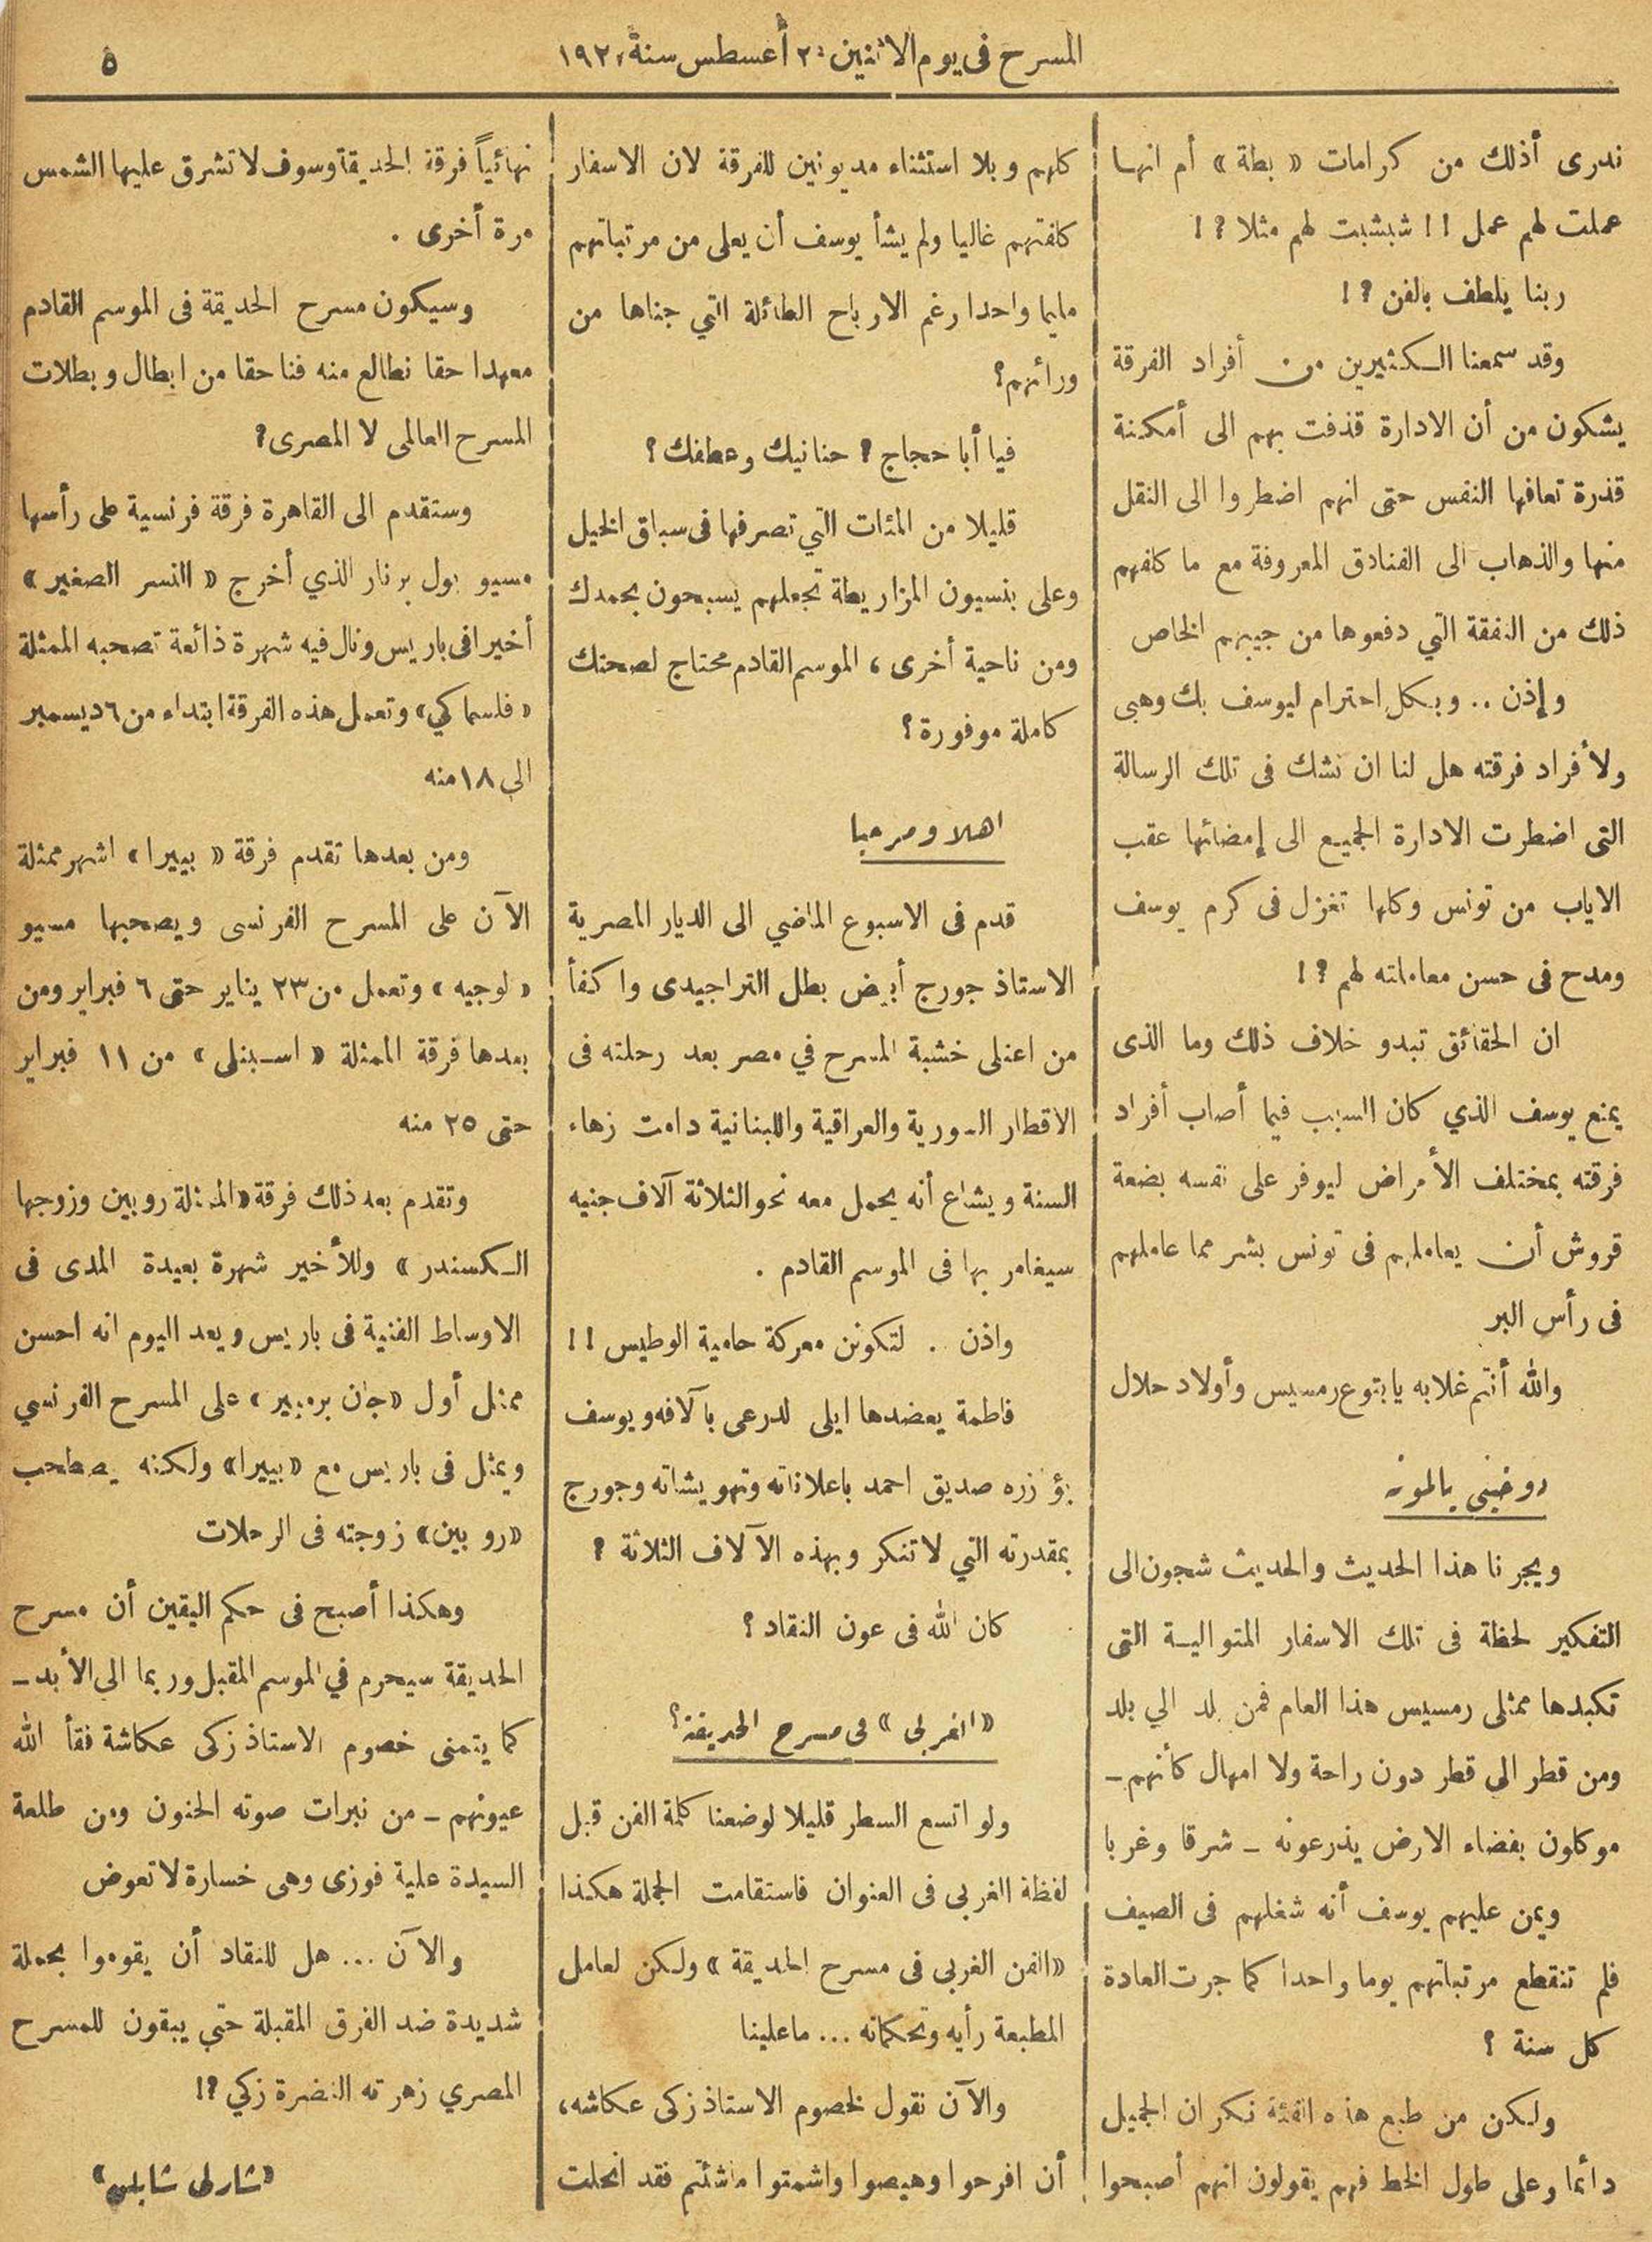 المسرح فى يوم الاثنين ٢ أغسطس سنة ١٩٢
٥
ندرى أذلك من كرامات « بطة » أم انها
عملت لهم عمل !! شبشبت لهم مثلا ؟!
ربنا يلطف بالفن ؟!
وقد سمعنا الكثيرين من أفراد الفرقة
يشكون من أن الادارة قذفت بهم الى أمكنة
قذرة تعافها النفس حتى انهم اضطروا الى النقل
منها والذهاب الى الفنادق المعروفة مع ما كلفهم
ذلك من النفقة التي دفعوها من جيبهم الخاص
وإذن .. وبكل احترام ليوسف بك وهبى
ولأفراد فرقته هل لنا ان نشك فى تلك الرسالة
التى اضطرت الادارة الجميع الى إمضائها عقب
الاياب من تونس وكلها تغزل فى كرم يوسف
ومدح فى حسن معاملته لهم ؟!
ان الحقائق تبدو خلاف ذلك وما الذى
يمنع يوسف الذي كان السبب فيما أصاب أفراد
فرقته بمختلف الأمراض ليوفر على نفسه بضعة
قروش أن يعاملهم فى تونس بشر مما عاملهم
فى رأس البر
والله أنتم غلابه يا بتوع رمسيس وأولاد حلال
دوخيني يالمونه
ويجرنا هذا الحديث والحديث شجون الى
التفكير لحظة فى تلك الاسفار المتوالية التى
تكبدها ممثلى رمسيس هذا العام فمن بلد الي بلد
ومن قطر الى قطر دون راحة ولا امهال كأنهم ـ
موكلون بفضاء الارض يذرعونه ـ شرقا وغربا
ويمن عليهم يوسف أنه شغلهم فى الصيف
فلم تنقطع مرتباتهم يوما واحدا كما جرت العادة
كل سنة ؟
ولكن من طبع هذه الفئة نكران الجميل
دائما وعلى طول الخط فهم يقولون انهم أصبحوا
كلهم وبلا استثناء مديونين للفرقة لان الاسفار
كلفتهم غاليا ولم يشأ يوسف أن يعلى من مرتباتهم
مليما واحدا رغم الارباح الطائلة التي جناها من
ورائهم؟
فيا أبا حجاج ؟ حنانيك وعطفك ؟
قليلا من المئات التي تصرفها فى سباق الخيل
وعلى بنسيون المزاريطة تجعلهم يسبحون بحمدك
ومن ناحية أخرى ، الموسم القادم محتاج لصحتك
كاملة موفورة ؟
اهلا ومرحبا
قدم فى الاسبوع الماضي الى الديار المصرية
الاستاذ جورج أبيض بطل التراجيدى واكفأ
من اعتلى خشبة المسرح في مصر بعد رحلته فى
الاقطار السورية والعراقية واللبنانية دامت زهاء
السنة ويشاع أنه يحمل معه نحو الثلاثة آلاف جنيه
سيغامر بها فى الموسم القادم .
واذن . لتكونن معركة حامية الوطيس !!
فاطمة يعضدها ايلى لدرعى بآلافه ويوسف
يؤزره صديق احمد باعلاناته وتهويشاته وجورج
بمقدرته التي لا تنكر وبهذه الآلاف الثلاثة ؟
كان الله فى عون النقاد ؟
« الغربى » فى مسرح الحديقة؟
ولو اتسع السطر قليلا لوضعنا كلمة الفن قبل
لفظة الغربى فى العنوان فاستقامت الجملة هكذا
«الفن الغربى فى مسرح الحديقة » ولكن لعامل
المطبعة رأيه وتحكماته ... ماعلينا
والآن نقول لخصوم الاستاذ زكى عكاشه،
أن افرحوا وهيصوا واشمتوا ماشئتم فقد انحلت
نهائياً فرقة الحديقة وسوف لا تشرق عليها الشمس
مرة أخرى .
وسيكون مسرح الحديقة فى الموسم القادم
معهدا حقا نطالع منه فنا حقا من ابطال وبطلات
المسرح العالمى لا المصرى؟
وستقدم الى القاهرة فرقة فرنسية على رأسها
مسيو بول برنار الذي أخرج « النسر الصغير »
أخيرا فى باريس ونال فيه شهرة ذائعة تصحبه الممثلة
« فلسماكي » وتعمل هذه الفرقة ابتداء من ٦ ديسمبر
الي ١٨ منه
ومن بعدها تقدم فرقة « بييرا » اشهر ممثلة
الآن على المسرح الفرنسى ويصحبها مسيو
« لوجيه » وتعمل من ٢٣ يناير حتى ٦ فبراير ومن
بعدها فرقة الممثلة « اسبنلى » من ١١ فبراير
حتى ٢٥ منه
وتقدم بعد ذلك فرقة «الممثلة روبين وزوجها
الكسندر » وللأخير شهرة بعيدة المدى فى
الاوساط الفنية فى باريس ويعد اليوم انه احسن
ممثل أول «جان برمبير» على المسرح الفرنسي
ويمثل فى باريس مع «بييرا» ولكنه يصطحب
«روبين» زوجته فى الرحلات
وهكذا أصبح فى حكم اليقين أن مسرح
الحديقة سيحرم في الموسم المقبل وربما الى الأبد ـ
كما يتمنى خصوم الاستاذ زكى عكاشة فقأ الله
عيونهم ـ من نبرات صوته الحنون ومن طلعة
السيدة علية فوزى وهى خسارة لا تعوض
والآن ... هل للنقاد أن يقوموا بحملة
شديدة ضد الفرق المقبلة حتي يبقون للمسرح
المصري زهرته النضرة زكي ؟!
«شارلى شابلن»